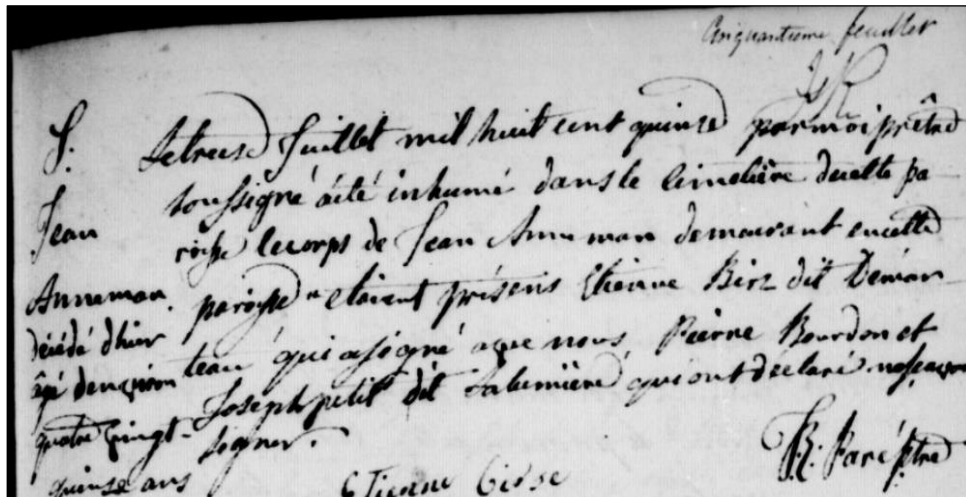 Cinquantieme feuillet
S.
Jean
Anneman.
décédé d'hier
âgé denviron
quatre vingt-
quinse ans
Le treise Juillet mil huit cent quinse par moi prêtre
soussigné a été inhumé dans le cimetière de cette pa-
roisse le corps de Jean Anneman demeurant en cette
paroisse étaient présens Etienne Birz dit Demar-
teau qui a signé avec nous, Pierre Bourdon et
Joseph petit dit Lalumière qui ont déclaré ne savoir
signer.
Etienne
Paré ptre